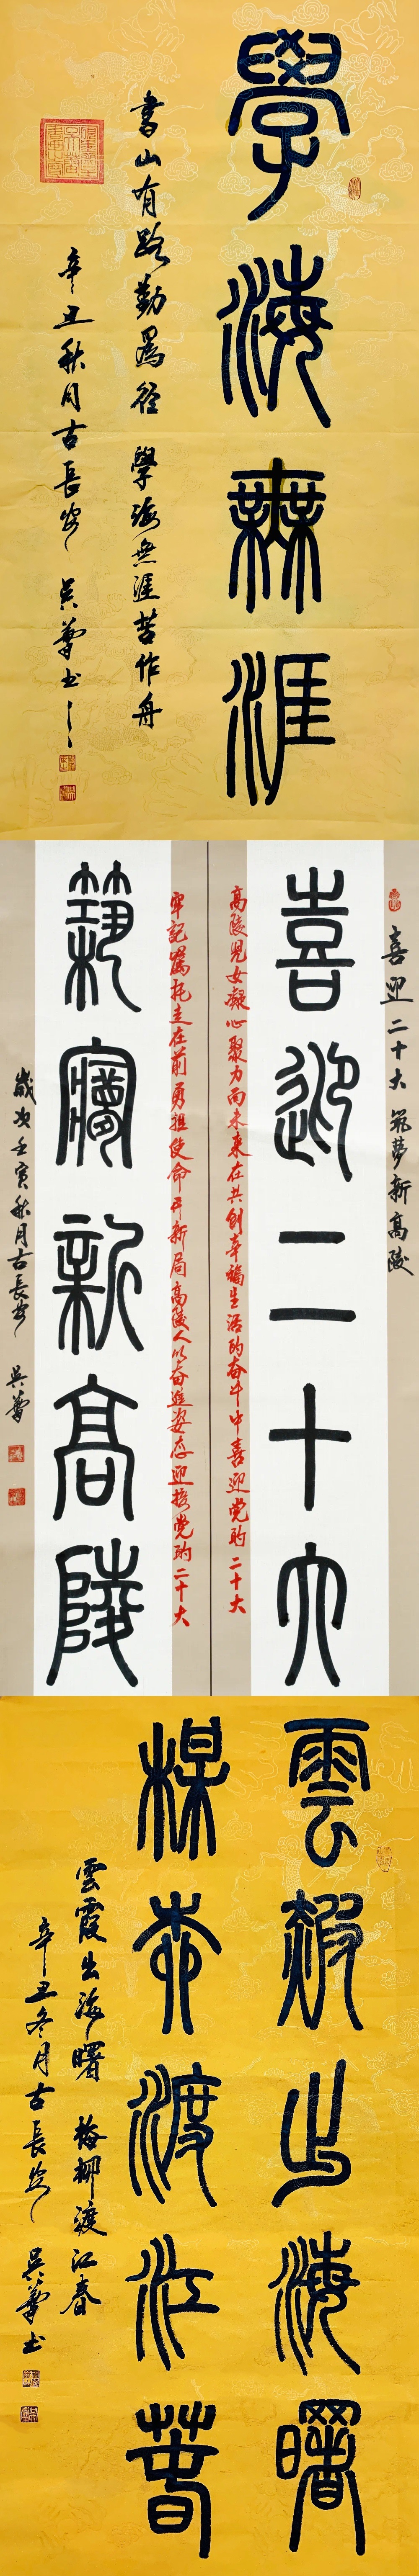 學海無涯
書山有路勤為徑 學海無涯苦作舟
辛丑秋月古長安 吳夢書
喜迎二十大 筑夢新高陵
喜迎二十大
高陵兒女凝心聚力向未來在共創幸福生活的奋斗中喜迎党的二十大
牢記嘱托走在前勇担使命开新局高陵人以奋進姿态迎接党的二十大
築夢新高陵
歲次壬寅秋月古長安 吳夢
雲霞出海曙
梅柳渡江春
雲霞出海曙 梅柳渡江春
辛丑冬月古長安 吳夢書